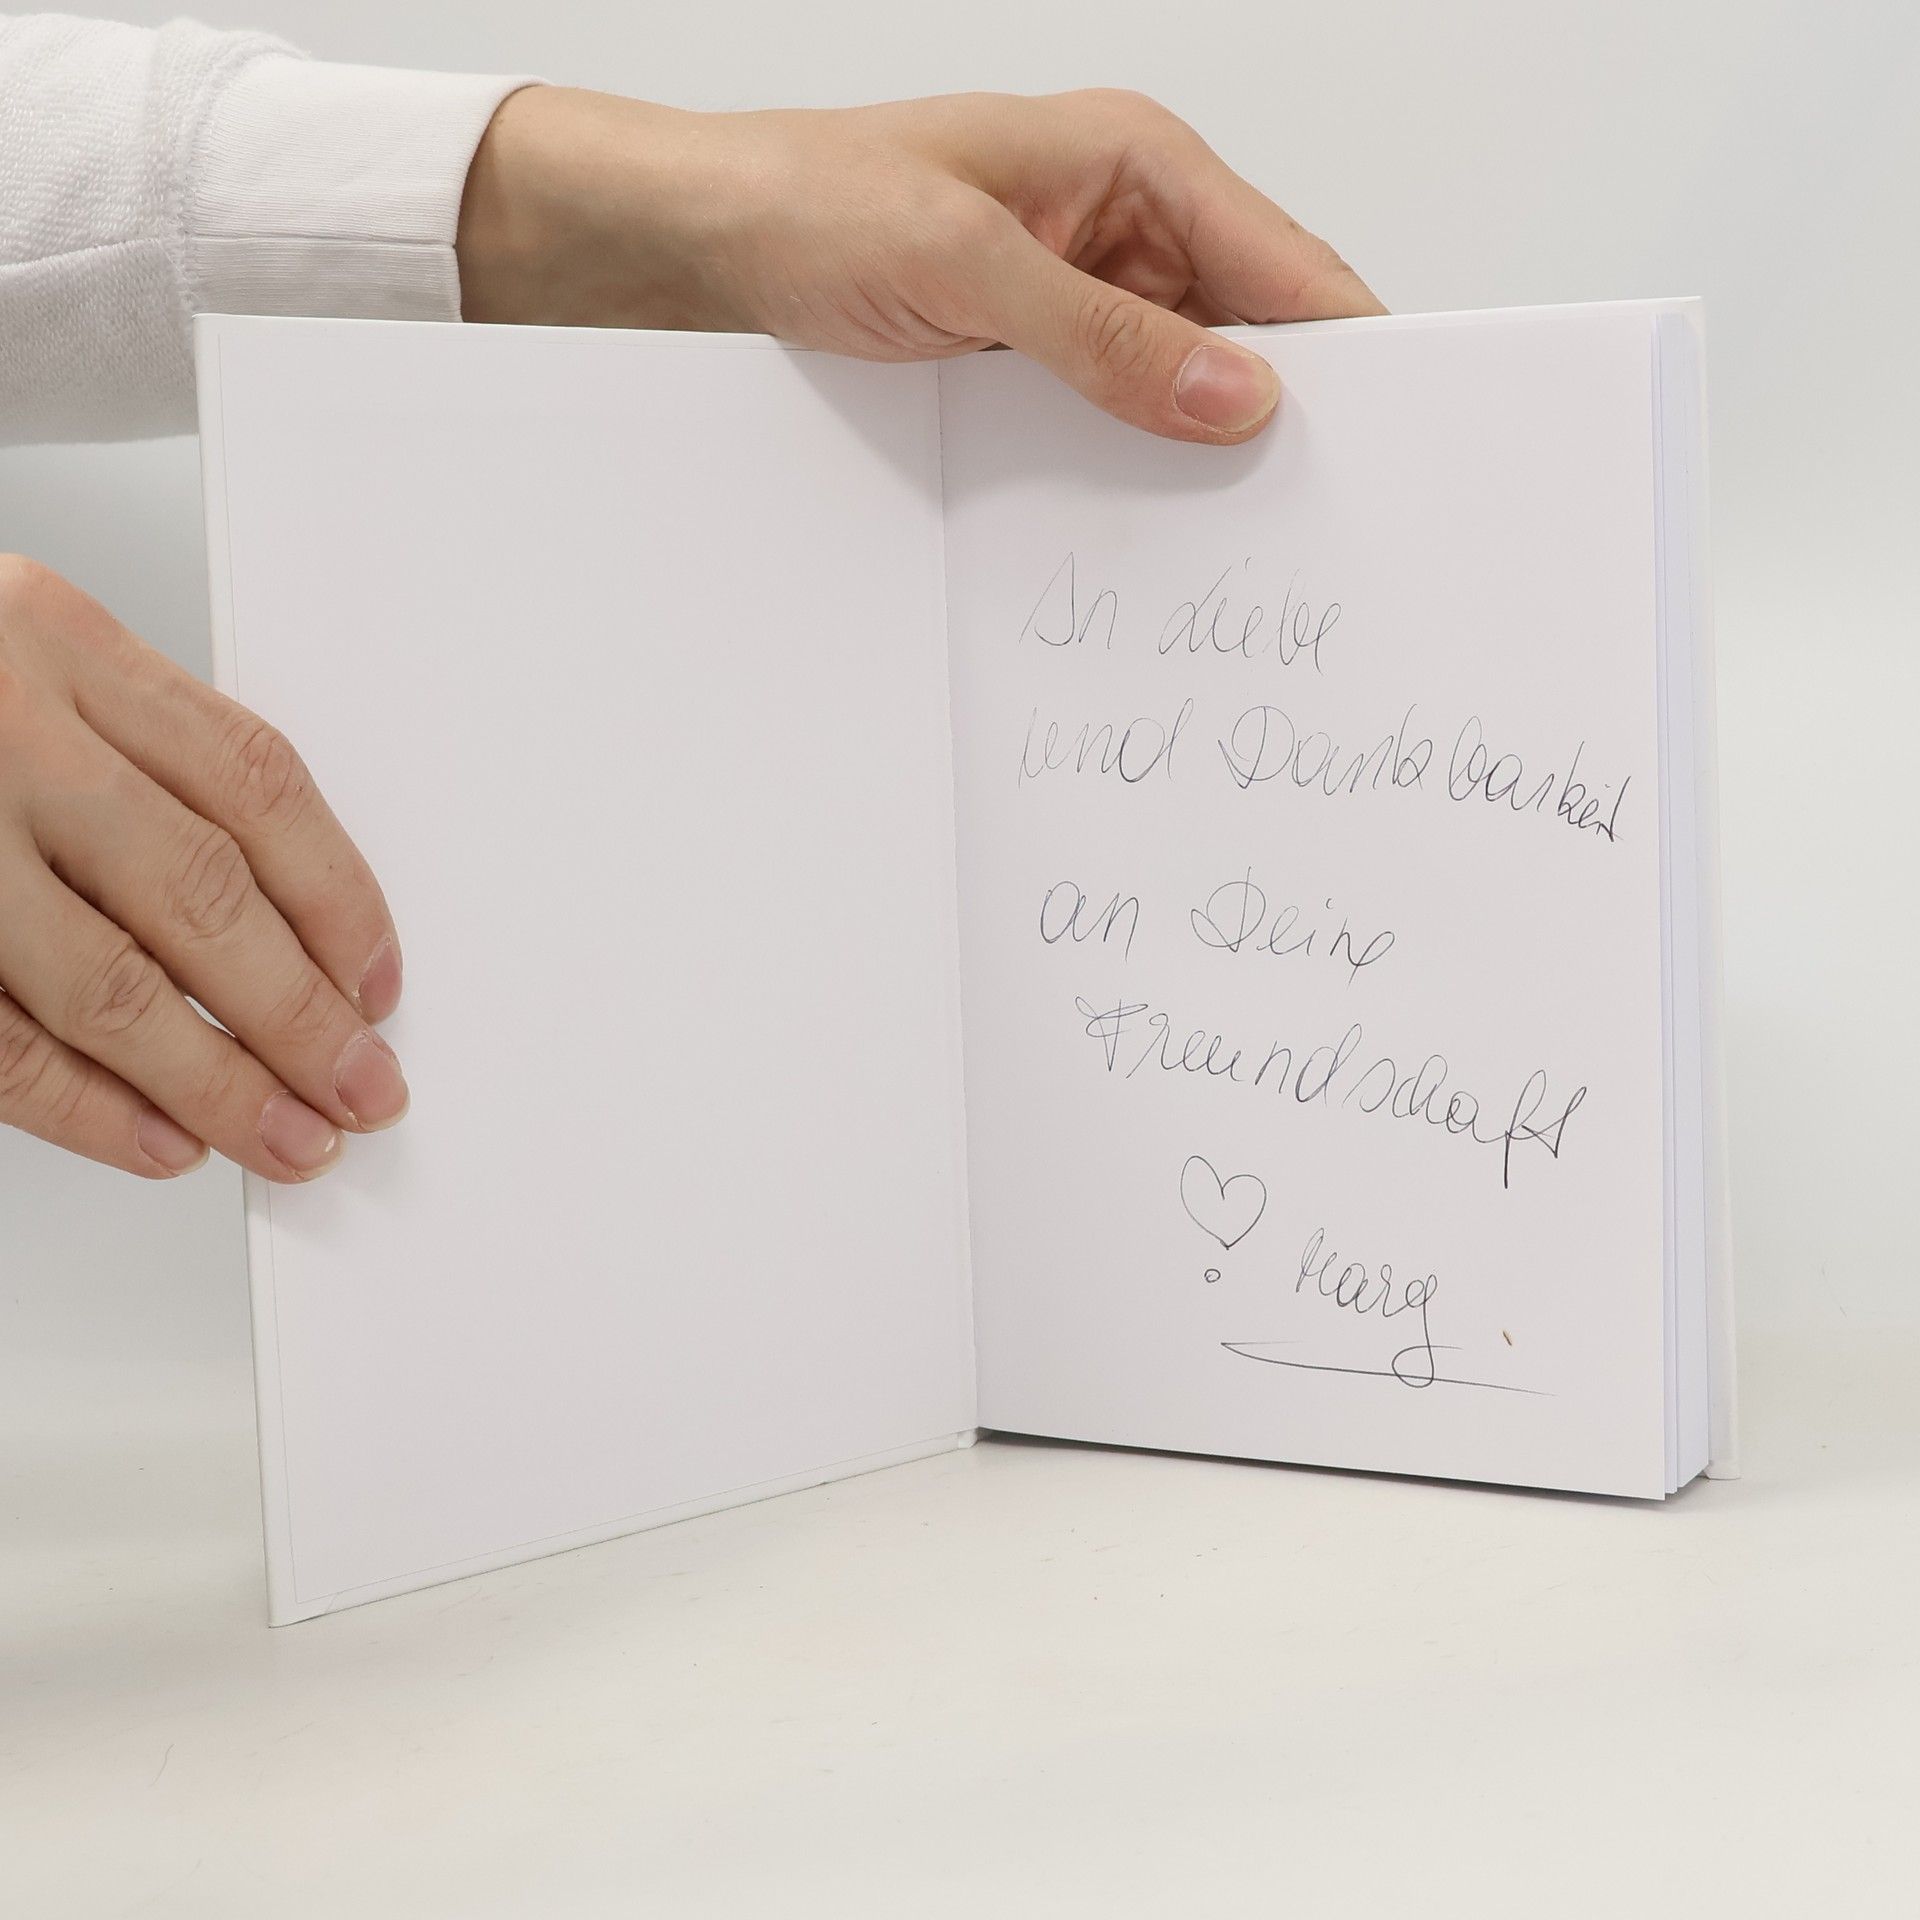 In Liebe
und Dankbarkeit
an Deine
Freundschaft
Marg